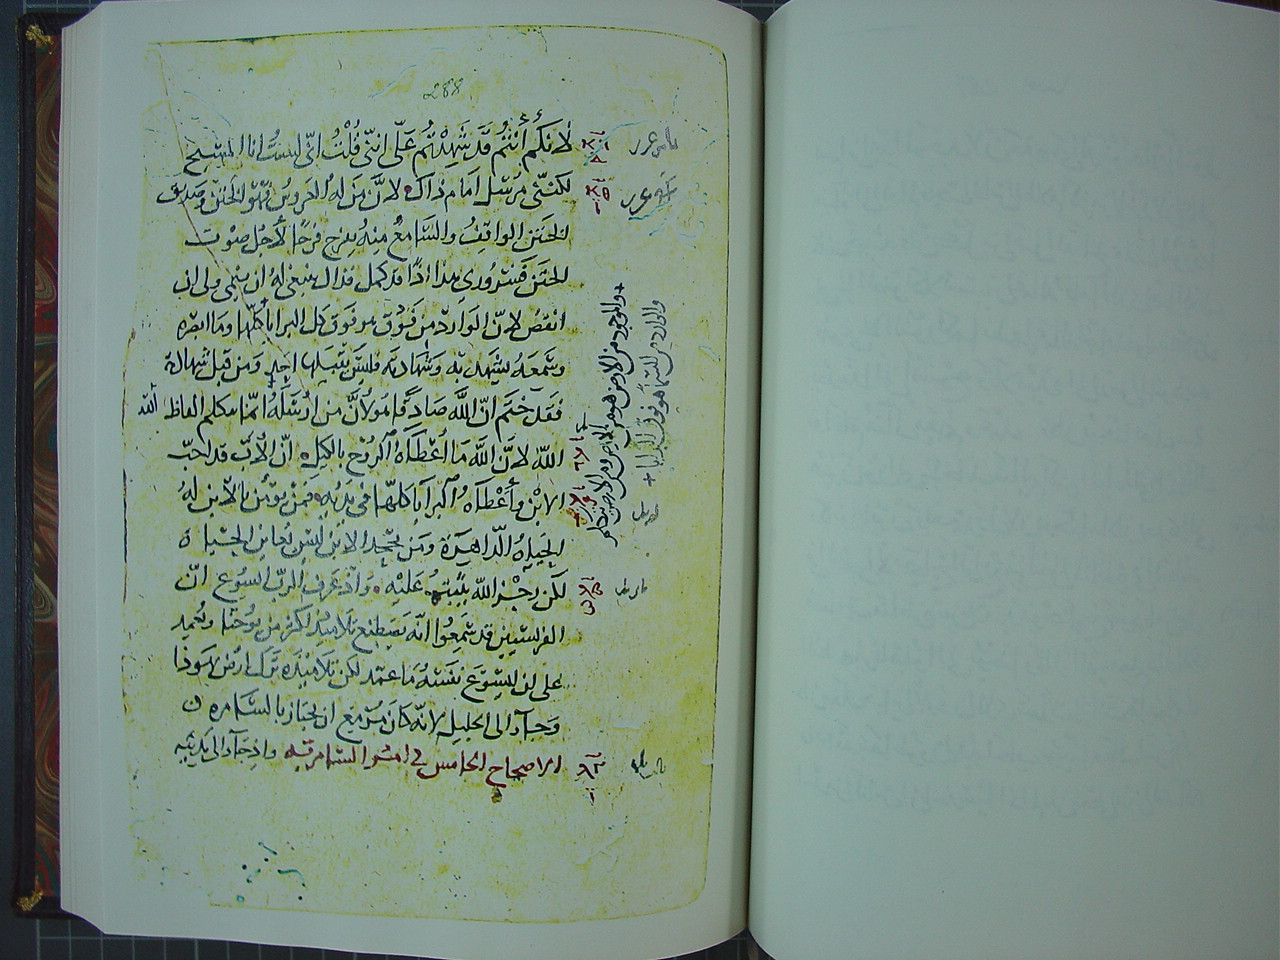 288
لانكم أنتم قد شهدتم على انني قلت اني لست انا المسيح
لكنني مرسل امام ذاك لان من له العروس فهو الختن وصديق
الختن الواقف والسامع منه يفرح فرحا لاجل صوت
الختن فسروري هذا اذا قد كمل فذاك ينبغي له ان ينمى ولي ان
انقص لان الوارد من فوق هو فوق كل البرايا كلها وما ابصره
وسمعه يشهد به وشهادته فليس يقبلها احد ومن قبل شهادة
فقد ختم ان الله صادقا هو لان من ارسله الله انما يتكلم الفاظ
الله لان الله ما اعطاه الروح بالكيل ان الاب قد احب
الابن وأعطاه البرايا كلها في يديه فمن يؤمن بالابن له
الحياه الداهرة ومن يجحد الابن ليس يعاين الحياة
لكن رجز الله يثبت عليه واذ عرف الرب ايسوع ان
الفريسيين قد سمعوا انه يصطنع تلاميذ اكثر من يوحنا ويعمد
على ان ايسوع نفسه ما عمد لكن تلاميذه ترك ارض يهوذا
وجاء الى الجليل لانه كان مزمع ان يجتاز بالسامره
الاصحاح الخامس في امر السامريه واذ جاء الى مدينه
والموجود من الارض هو من الارض ومن الارض يتكلم
والوارد من السما هو فوق البرايا